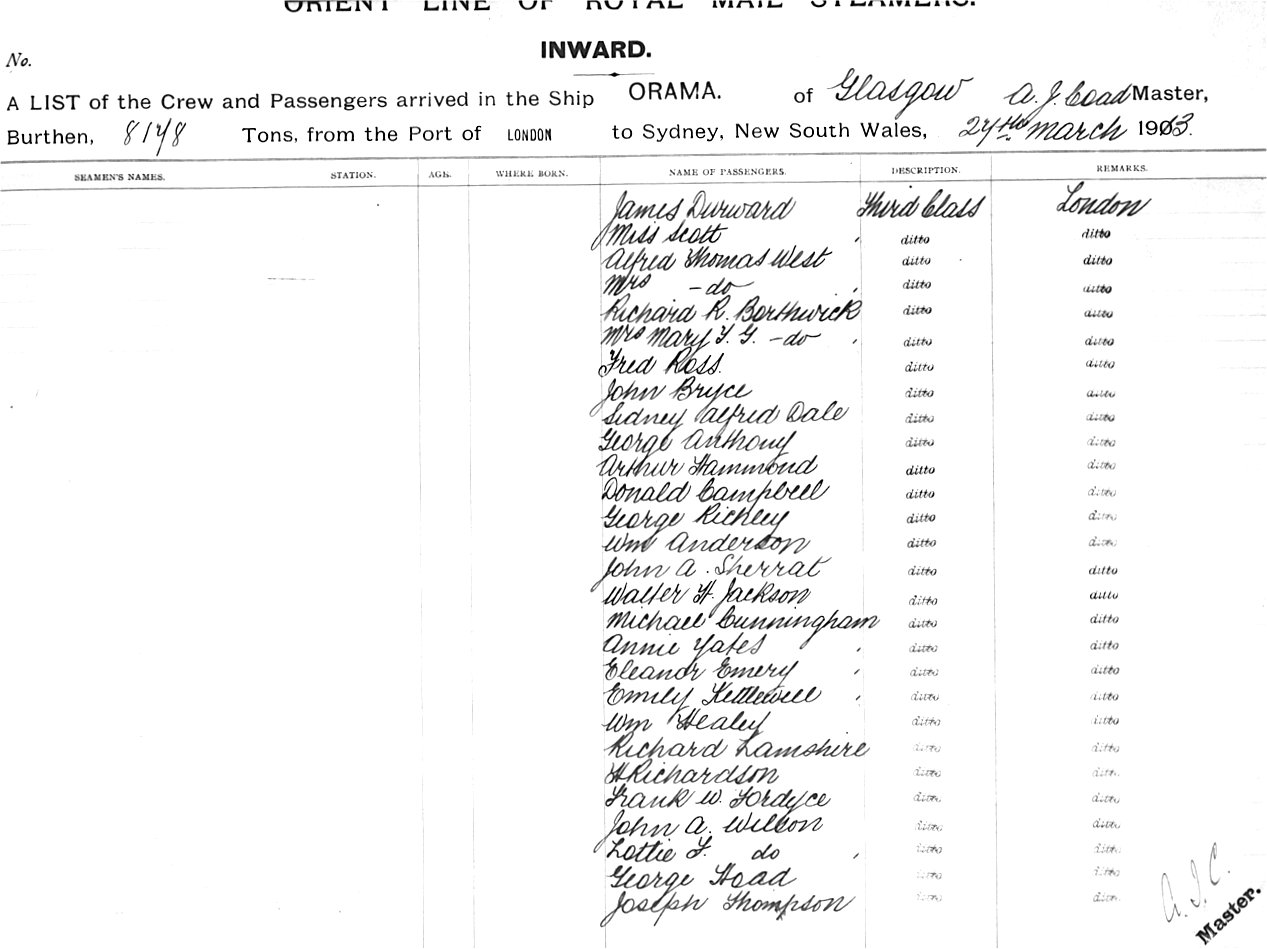 ORIENT LINE OF ROYAL MAIL STEAMERS.
INWARD.
No.
A LIST of the Crew and Passengers arrived in the Ship ORAMA. of Glasgow A. J. Coad Master,
Burthen, 8178 Tons, from the Port of LONDON to Sydney, New South Wales, 24th March 1913.
SEAMEN'S NAMES. STATION. AGE. WHERE BORN. NAME OF PASSENGERS. DESCRIPTION. REMARKS.
James Durward Third Class London
Miss Scott ditto ditto
Alfred Thomas West ditto ditto
Mrs - do ditto ditto
Richard R. Borthwick ditto ditto
Mrs Mary Y. G. - do ditto ditto
Fred Ross. ditto ditto
John Bryce ditto ditto
Sidney Alfred Dale ditto ditto
George Anthony ditto ditto
Arthur Hammond ditto ditto
Donald Campbell ditto ditto
George Richley ditto ditto
Wm Anderson ditto ditto
John A. Sherrat ditto ditto
Walter H. Jackson ditto ditto
Michael Cunningham ditto ditto
Annie Yates ditto ditto
Eleanor Emery ditto ditto
Emily Kettlewell ditto ditto
Wm Healey ditto ditto
Richard Lamshire ditto ditto
H Richardson ditto ditto
Frank W. Fordyce ditto ditto
John A. Wilson ditto ditto
Lottie F. do ditto ditto
George Hoad ditto ditto
Joseph Thompson ditto ditto
A. J. C.
Master.